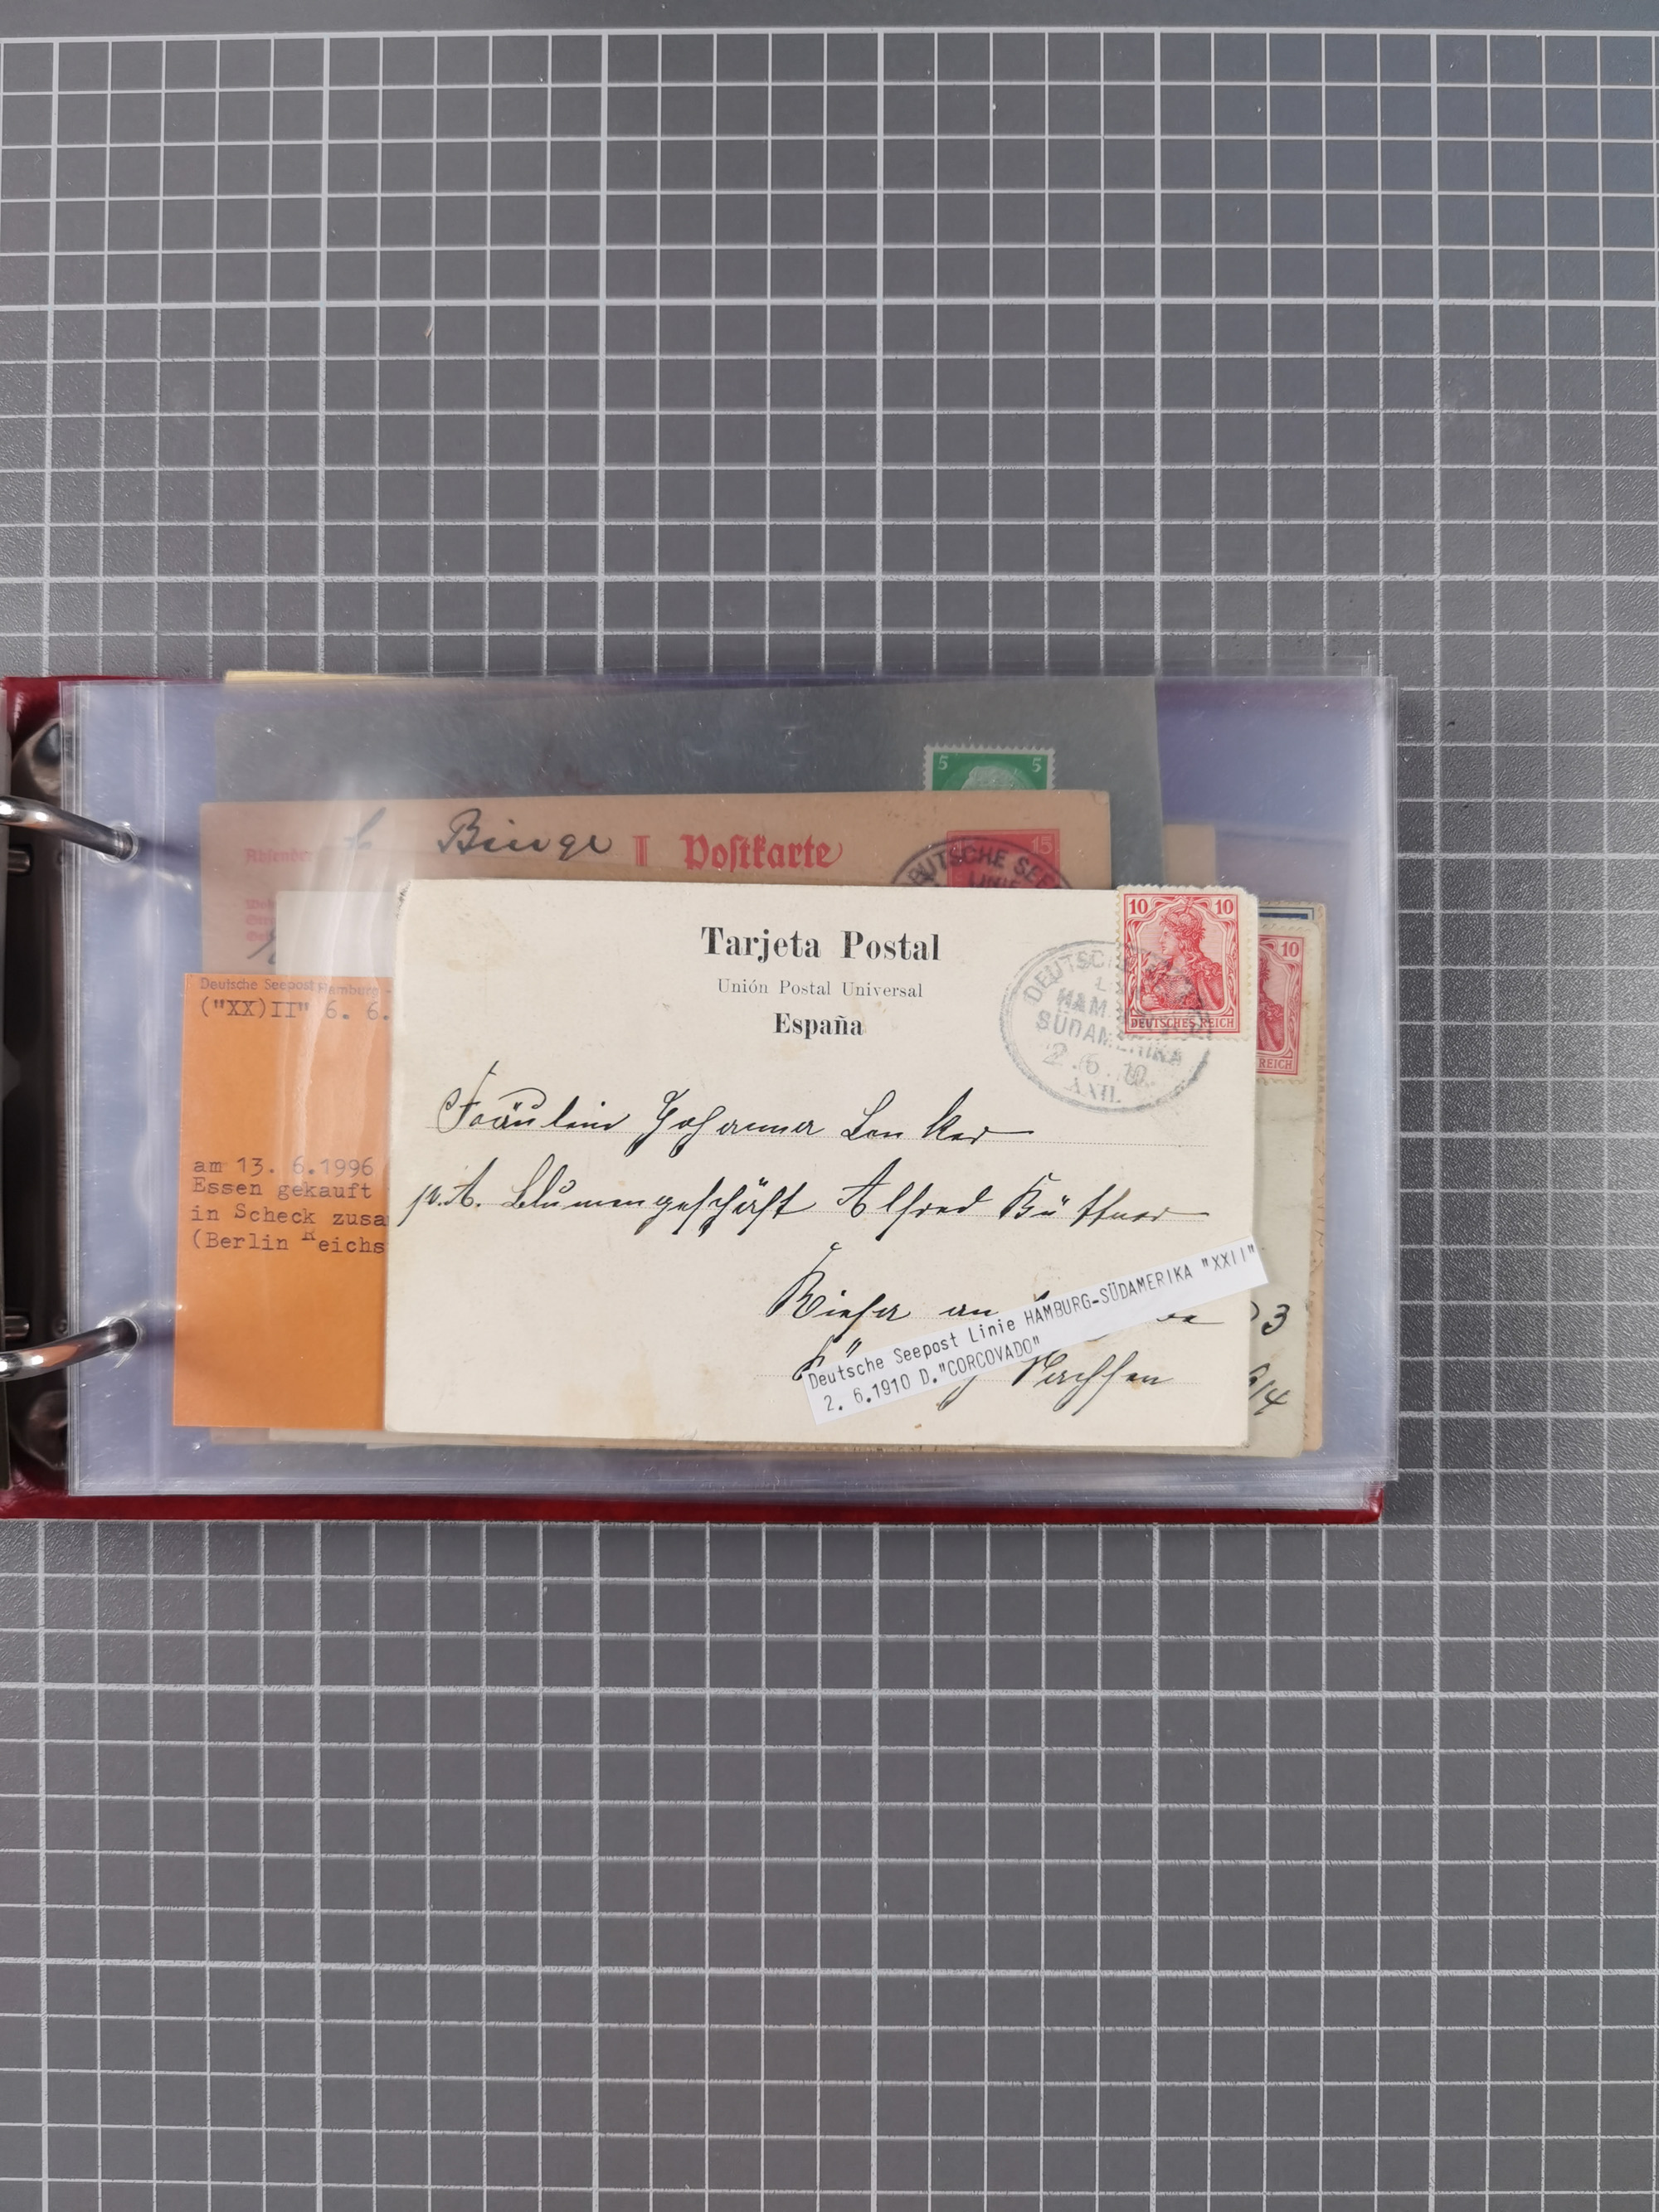 5 5
Binge
Absender
II Postkarte
15
DEUTSCHE SEE
LINIE
Tarjeta Postal
Unión Postal Universal
España
10 10
DEUTSCHES REICH
10
REICH
DEUTSC
HAM
SÜDAMERIKA
2.6.10.
XXII.
Deutsche Seepost Hamburg -
("XX)II" 6. 6.
am 13. 6.1996
Essen gekauft
in Scheck zusa
(Berlin Reichs
Fräulein Johanna Lenker
p. A. Blumengeschäft Alfred Büttner
Riesa an
Sachsen
Deutsche Seepost Linie HAMBURG-SÜDAMERIKA "XXII"
2. 6.1910 D."CORCOVADO"
3
14